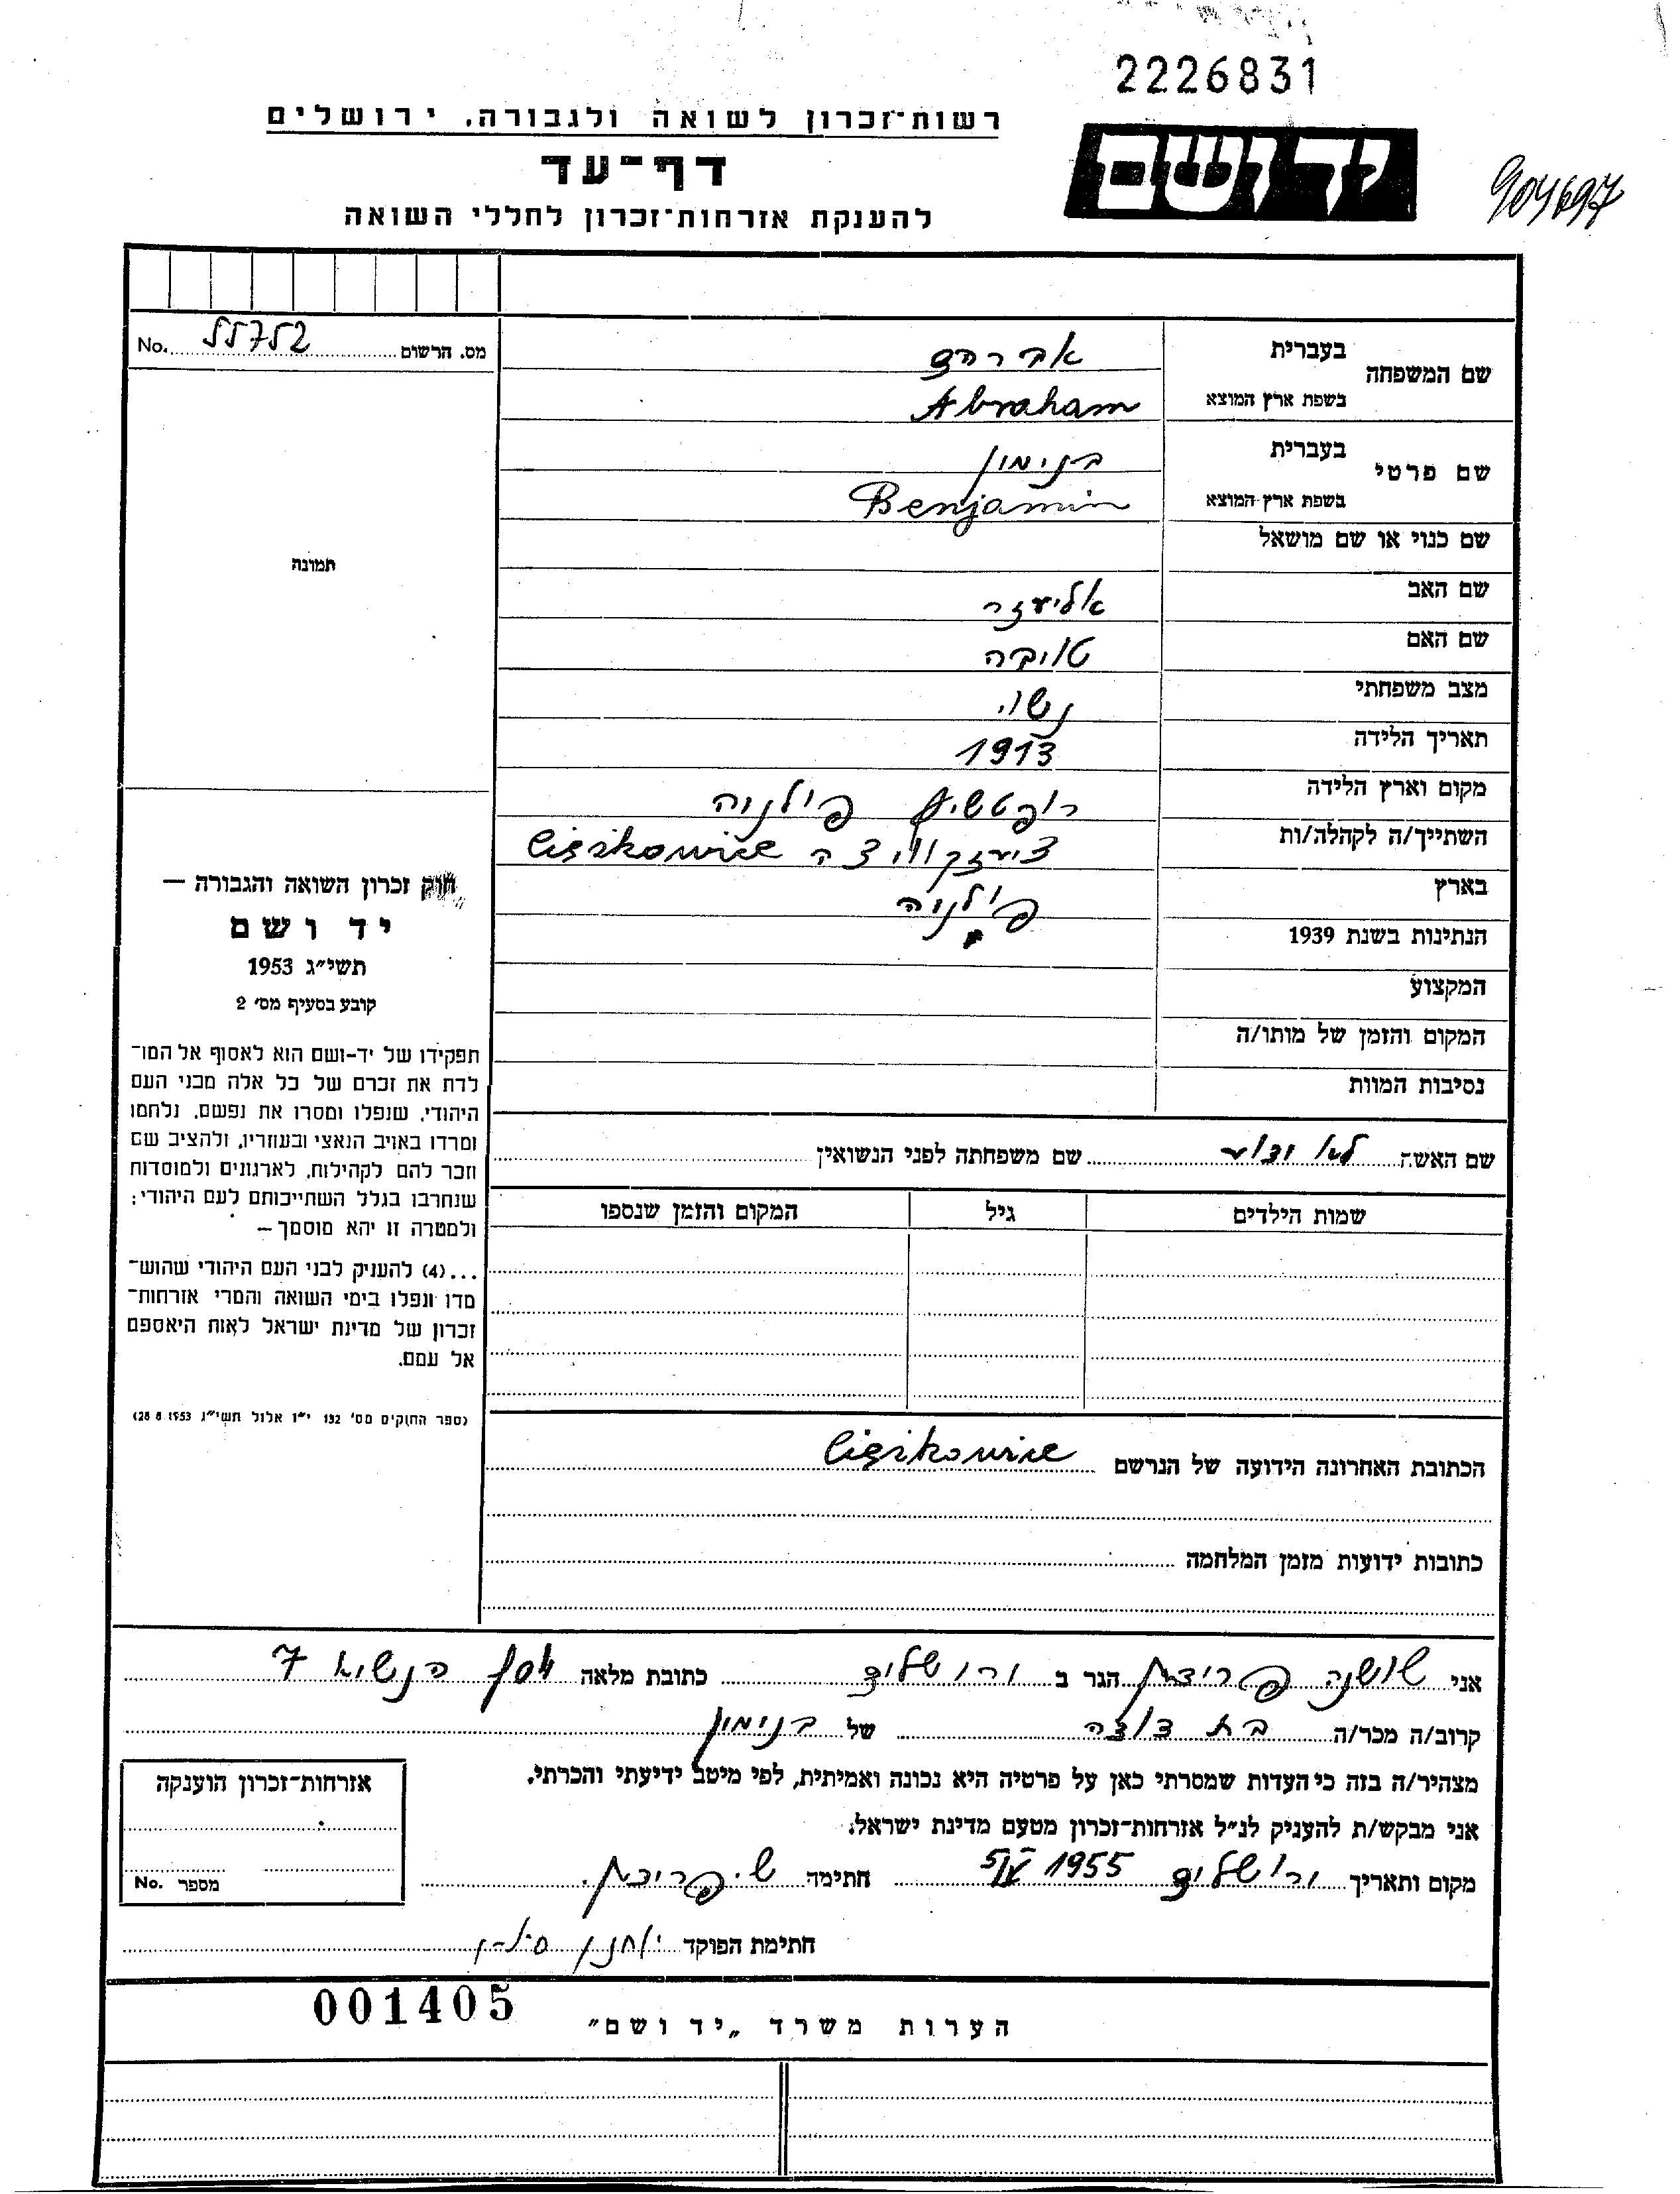 2226831
רשות־זכרון לשואה ולגבורה, ירושלים
יד ושם
דף־עד
904697
להענקת אזרחות־זכרון לחללי השואה
מס. הרשום 55752 No.
שם המשפחה
בעברית אברהם
בשפת ארץ המוצא Abraham
שם פרטי
בעברית בנימין
בשפת ארץ המוצא Benjamin
שם כנוי או שם מושאל
תמונה
שם האב אליעזר
שם האם טויבה
מצב משפחתי נשוי
תאריך הלידה 1913
מקום וארץ הלידה פולניה
השתייך/ה לקהלה/ות Ciężkowice
בארץ פולניה
הנתינות בשנת 1939
המקצוע
המקום והזמן של מותו/ה
נסיבות המוות
חוק זכרון השואה והגבורה —
יד ושם
תשי״ג 1953
קובע בסעיף מס׳ 2
תפקידו של יד-ושם הוא לאסוף אל המו־
לדת את זכרם של כל אלה מבני העם
היהודי, שנפלו ומסרו את נפשם, נלחמו
ומרדו באויב הנאצי ובעוזריו, ולהציב שם
וזכר להם לקהילות, לארגונים ולמוסדות
שנחרבו בגלל השתייכותם לעם היהודי;
ולמטרה זו יהא מוסמך —
...(4) להענק לבני העם היהודי שהוש־
מדו ונפלו בימי השואה והמרי אזרחות־
זכרון של מדינת ישראל לאות היאספם
אל עמם.
(ספר החוקים מס׳ 132 י״ז אלול תשי״ג 28.8.1953)
שם האשה לא ידוע שם משפחתה לפני הנשואין
שמות הילדים גיל המקום והזמן שנספו
הכתובת האחרונה הידועה של הנרשם Ciężkowice
כתובות ידועות מזמן המלחמה
אני שושנה הגר ב ירושלים כתובת מלאה יוסף הנשיא 7
קרוב/ה מכר/ה בת דודה של בנימין
מצהיר/ה בזה כי העדות שמסרתי כאן על פרטיה היא נכונה ואמיתית, לפי מיטב ידיעתי והכרתי.
אני מבקש/ת להעניק לנ״ל אזרחות־זכרון מטעם מדינת ישראל.
מקום ותאריך ירושלים 1955 חתימה
חתימת הפוקד
אזרחות־זכרון הוענקה
מספר No.
001405
הערות משרד „יד ושם״